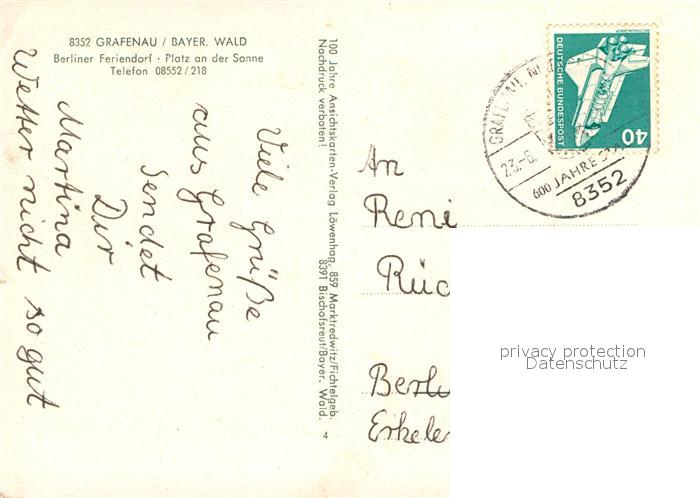 8352 GRAFENAU / BAYER. WALD
Berliner Feriendorf · Platz an der Sonne
Telefon 08552/218
Viele Grüße
aus Grafenau
sendet
Dir
Martina
Wetter nicht so gut
100 Jahre Ansichtskarten-Verlag Löwenhag, 859 Marktredwitz/Fichtelgeb.
Nachdruck verboten! 8391 Bischofsreut/Bayer. Wald.
4
DEUTSCHE BUNDESPOST
40
23.-6.
600 JAHRE
8352
An
Reni
Rüc
Berli
Erkele
privacy protection
Datenschutz